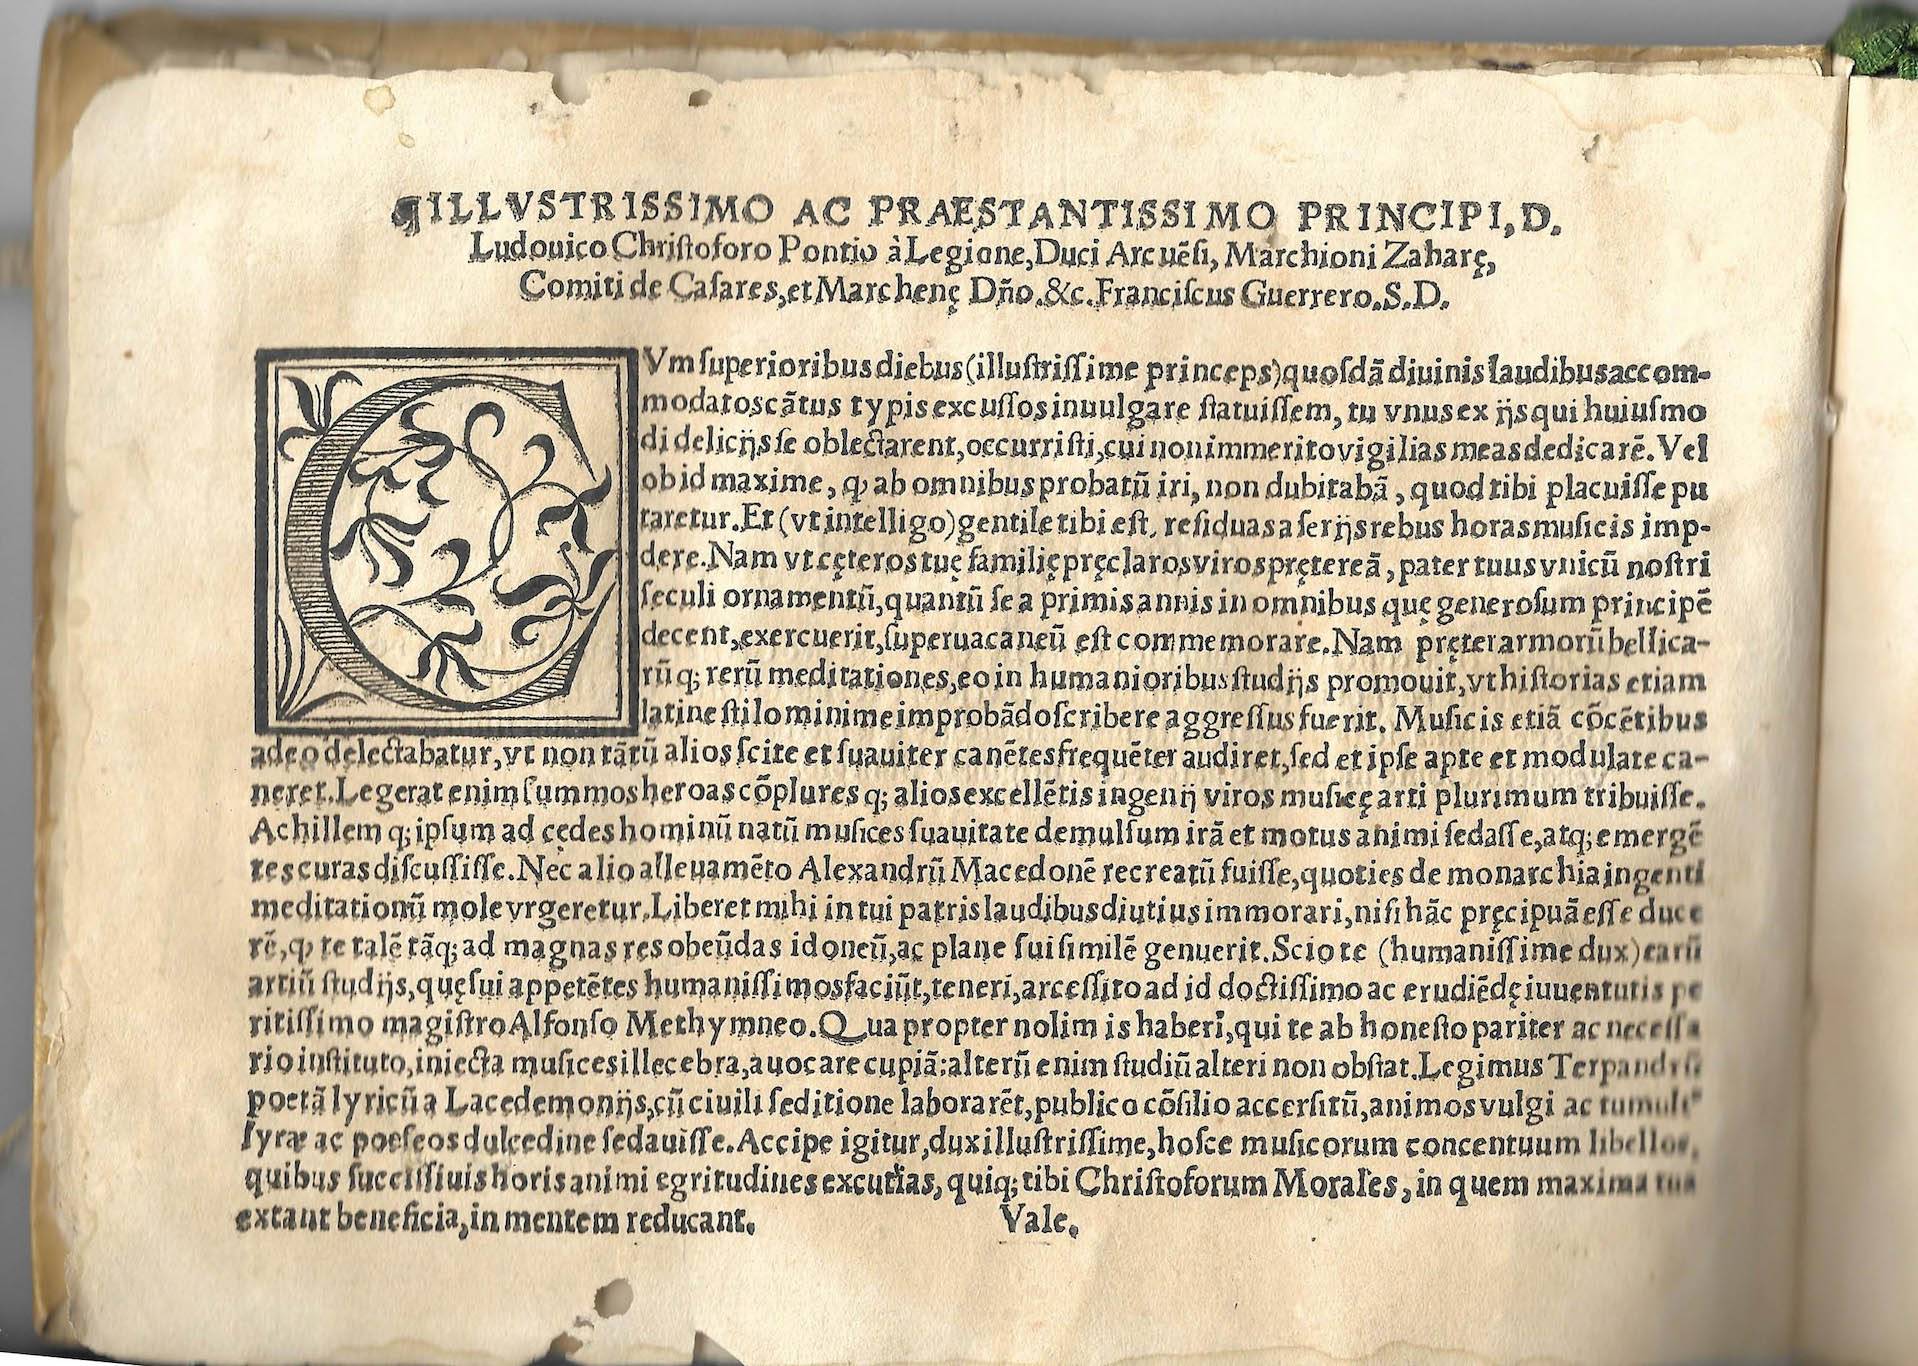 ¶ILLVSTRISSIMO AC PRAESTANTISSIMO PRINCIPI, D.
Ludouico Chriſtoforo Pontio à Legione, Duci Arcuẽſi, Marchioni Zaharę,
Comiti de Caſares, et Marchenę Dño. &c. Franciſcus Guerrero. S. D.
CVm ſuperioribus diebus (illuſtriſſime princeps) quoſdã diuinis laudibus accom-
modatos cãtus typis excuſſos in uulgare ſtatuiſſem, tu vnus ex ijs qui huiuſmo
di delicijs ſe oblectarent, occurriſti, cui non immerito vigilias meas dedicarẽ. Vel
ob id maxime, ꝙ ab omnibus probatũ iri, non dubitabã, quod tibi placuiſſe pu
taretur. Et (vt intelligo) gentile tibi eſt, reſiduas a ſerijs rebus horas muſicis imp-
dere. Nam vt cęteros tuę familię pręclaros viros pręterеã, pater tuus vnicũ noſtri
ſeculi ornamentũ, quantũ ſe a primis annis in omnibus quę generoſum principẽ
decent, exercuerit, ſuperuacaneũ eſt commemorare. Nam pręter armorũ bellica-
rũq; rerũ meditationes, eo in humanioribus ſtudijs promouit, vt hiſtorias etiam
latine ſtilo minime improbãdo ſcribere aggreſſus fuerit. Muſicis etiã cõcẽtibus
adeo delectabatur, vt non tãtũ alios ſcite et ſuauiter canẽtes frequẽter audiret, ſed et ipſe apte et modulate ca-
neret. Legerat enim ſummos heroas cõplures q; alios excellẽtis ingenij viros muſicę arti plurimum tribuiſſe.
Achillem q; ipſum ad cędes hominũ natũ muſices ſuauitate demulſum irã et motus animi ſedaſſe, atq; emergẽ
tes curas diſcuſſiſſe. Nec alio alleuamẽto Alexandrũ Macedonẽ recreatũ fuiſſe, quoties de monarchia ingenti
meditationũ mole vrgeretur. Liberet mihi in tui patris laudibus diutius immorari, niſi hãc pręcipuã eſſe duce
rẽ, ꝙ te talẽ tãq; ad magnas res obeũdas idoneũ, ac plane ſui ſimilẽ genuerit. Scio te (humaniſſime dux) earũ
artiũ ſtudijs, quę ſui appetẽtes humaniſſimos faciũt, teneri, arceſſito ad id doctiſſimo ac erudiẽdę iuuentutis pe
ritiſſimo magiſtro Alfonſo Methymneo. Quapropter nolim is haberi, qui te ab honeſto pariter ac neceſſa
rio inſtituto, iniecta muſices illecebra, auocare cupiã: alterũ enim ſtudiũ alteri non obſtat. Legimus Terpandrũ
poetã lyricũ a Lacedemonijs, cũ ciuili ſeditione laborarẽt, publico cõſilio accerſitũ, animos vulgi ac tumult⁹
lyræ ac poeſeos dulcedine ſedauiſſe. Accipe igitur, dux illuſtriſſime, hoſce muſicorum concentuum libellos,
quibus ſucceſſiuis horis animi egritudines excutias, quiq; tibi Chriſtoforum Morales, in quem maxima tua
extant beneficia, in mentem reducant. Vale.